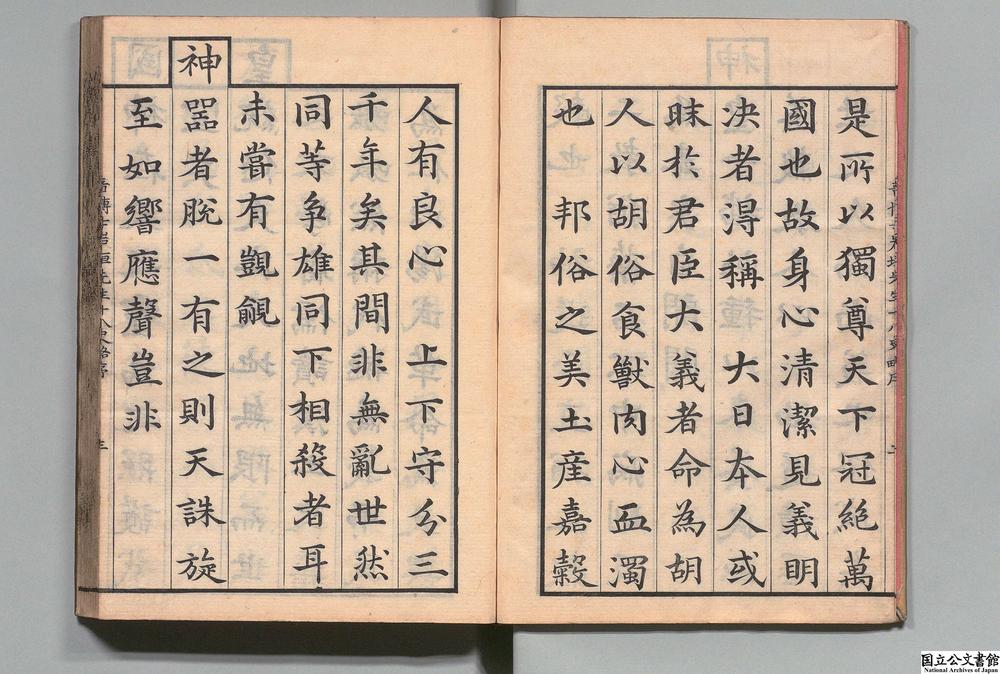 是所以獨尊天下冠絶萬
國也故身心清潔見義明
決者得稱 大日本人或
昧於君臣大義者命為胡
人以胡俗食獸肉心血濁
也 邦俗之美土産嘉穀
人有良心 上下守分三
千年矣其間非無亂世然
同等爭雄同下相殺者耳
未嘗有覬覦
神
器者脫一有之則天誅旋
至如響應聲豈非
国立公文書館
National Archives of Japan